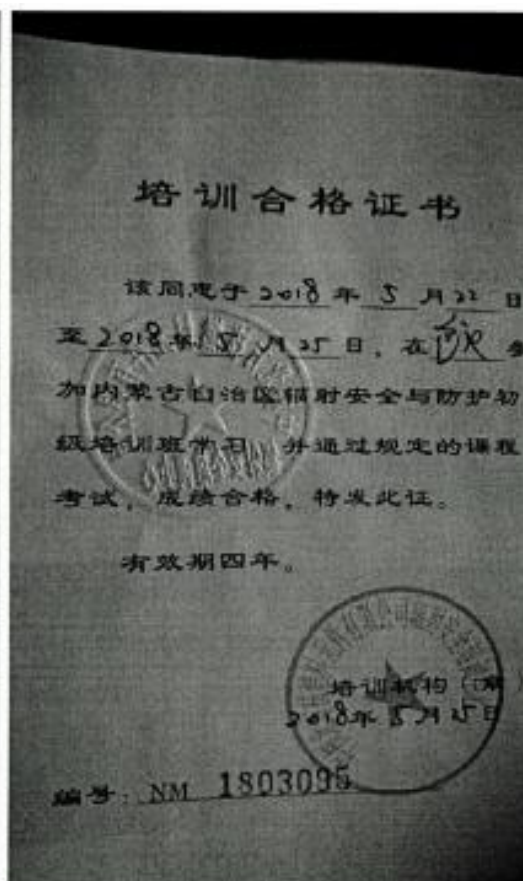 培训合格证书
该同志于 2018 年 5 月 22 日
至 2018 年 5 月 25 日，在
加内蒙古自治区辐射安全与防护初
级培训班学习，并通过规定的课程
考试，成绩合格，特发此证。
有效期四年。
培训机构（章
2018年 5月 25日
编号：NM 1803095